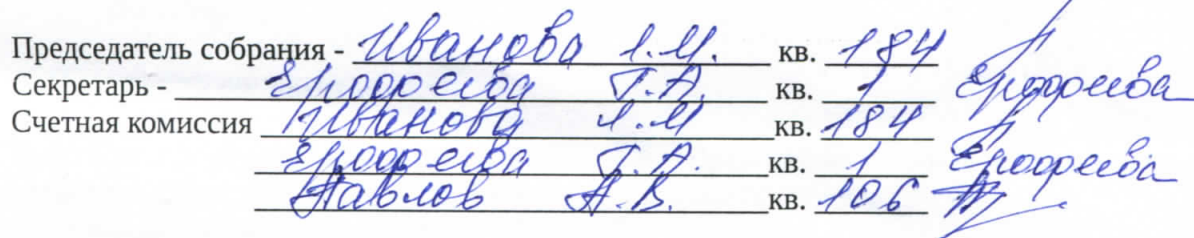 Председатель собрания - Иванова Л.М. кв. 184
Секретарь - Ерофеева Т.А. кв. 1 Ерофеева
Счетная комиссия Иванова Л.М кв. 184
Ерофеева Т.А. кв. 1 Ерофеева
Павлов А.В. кв. 106